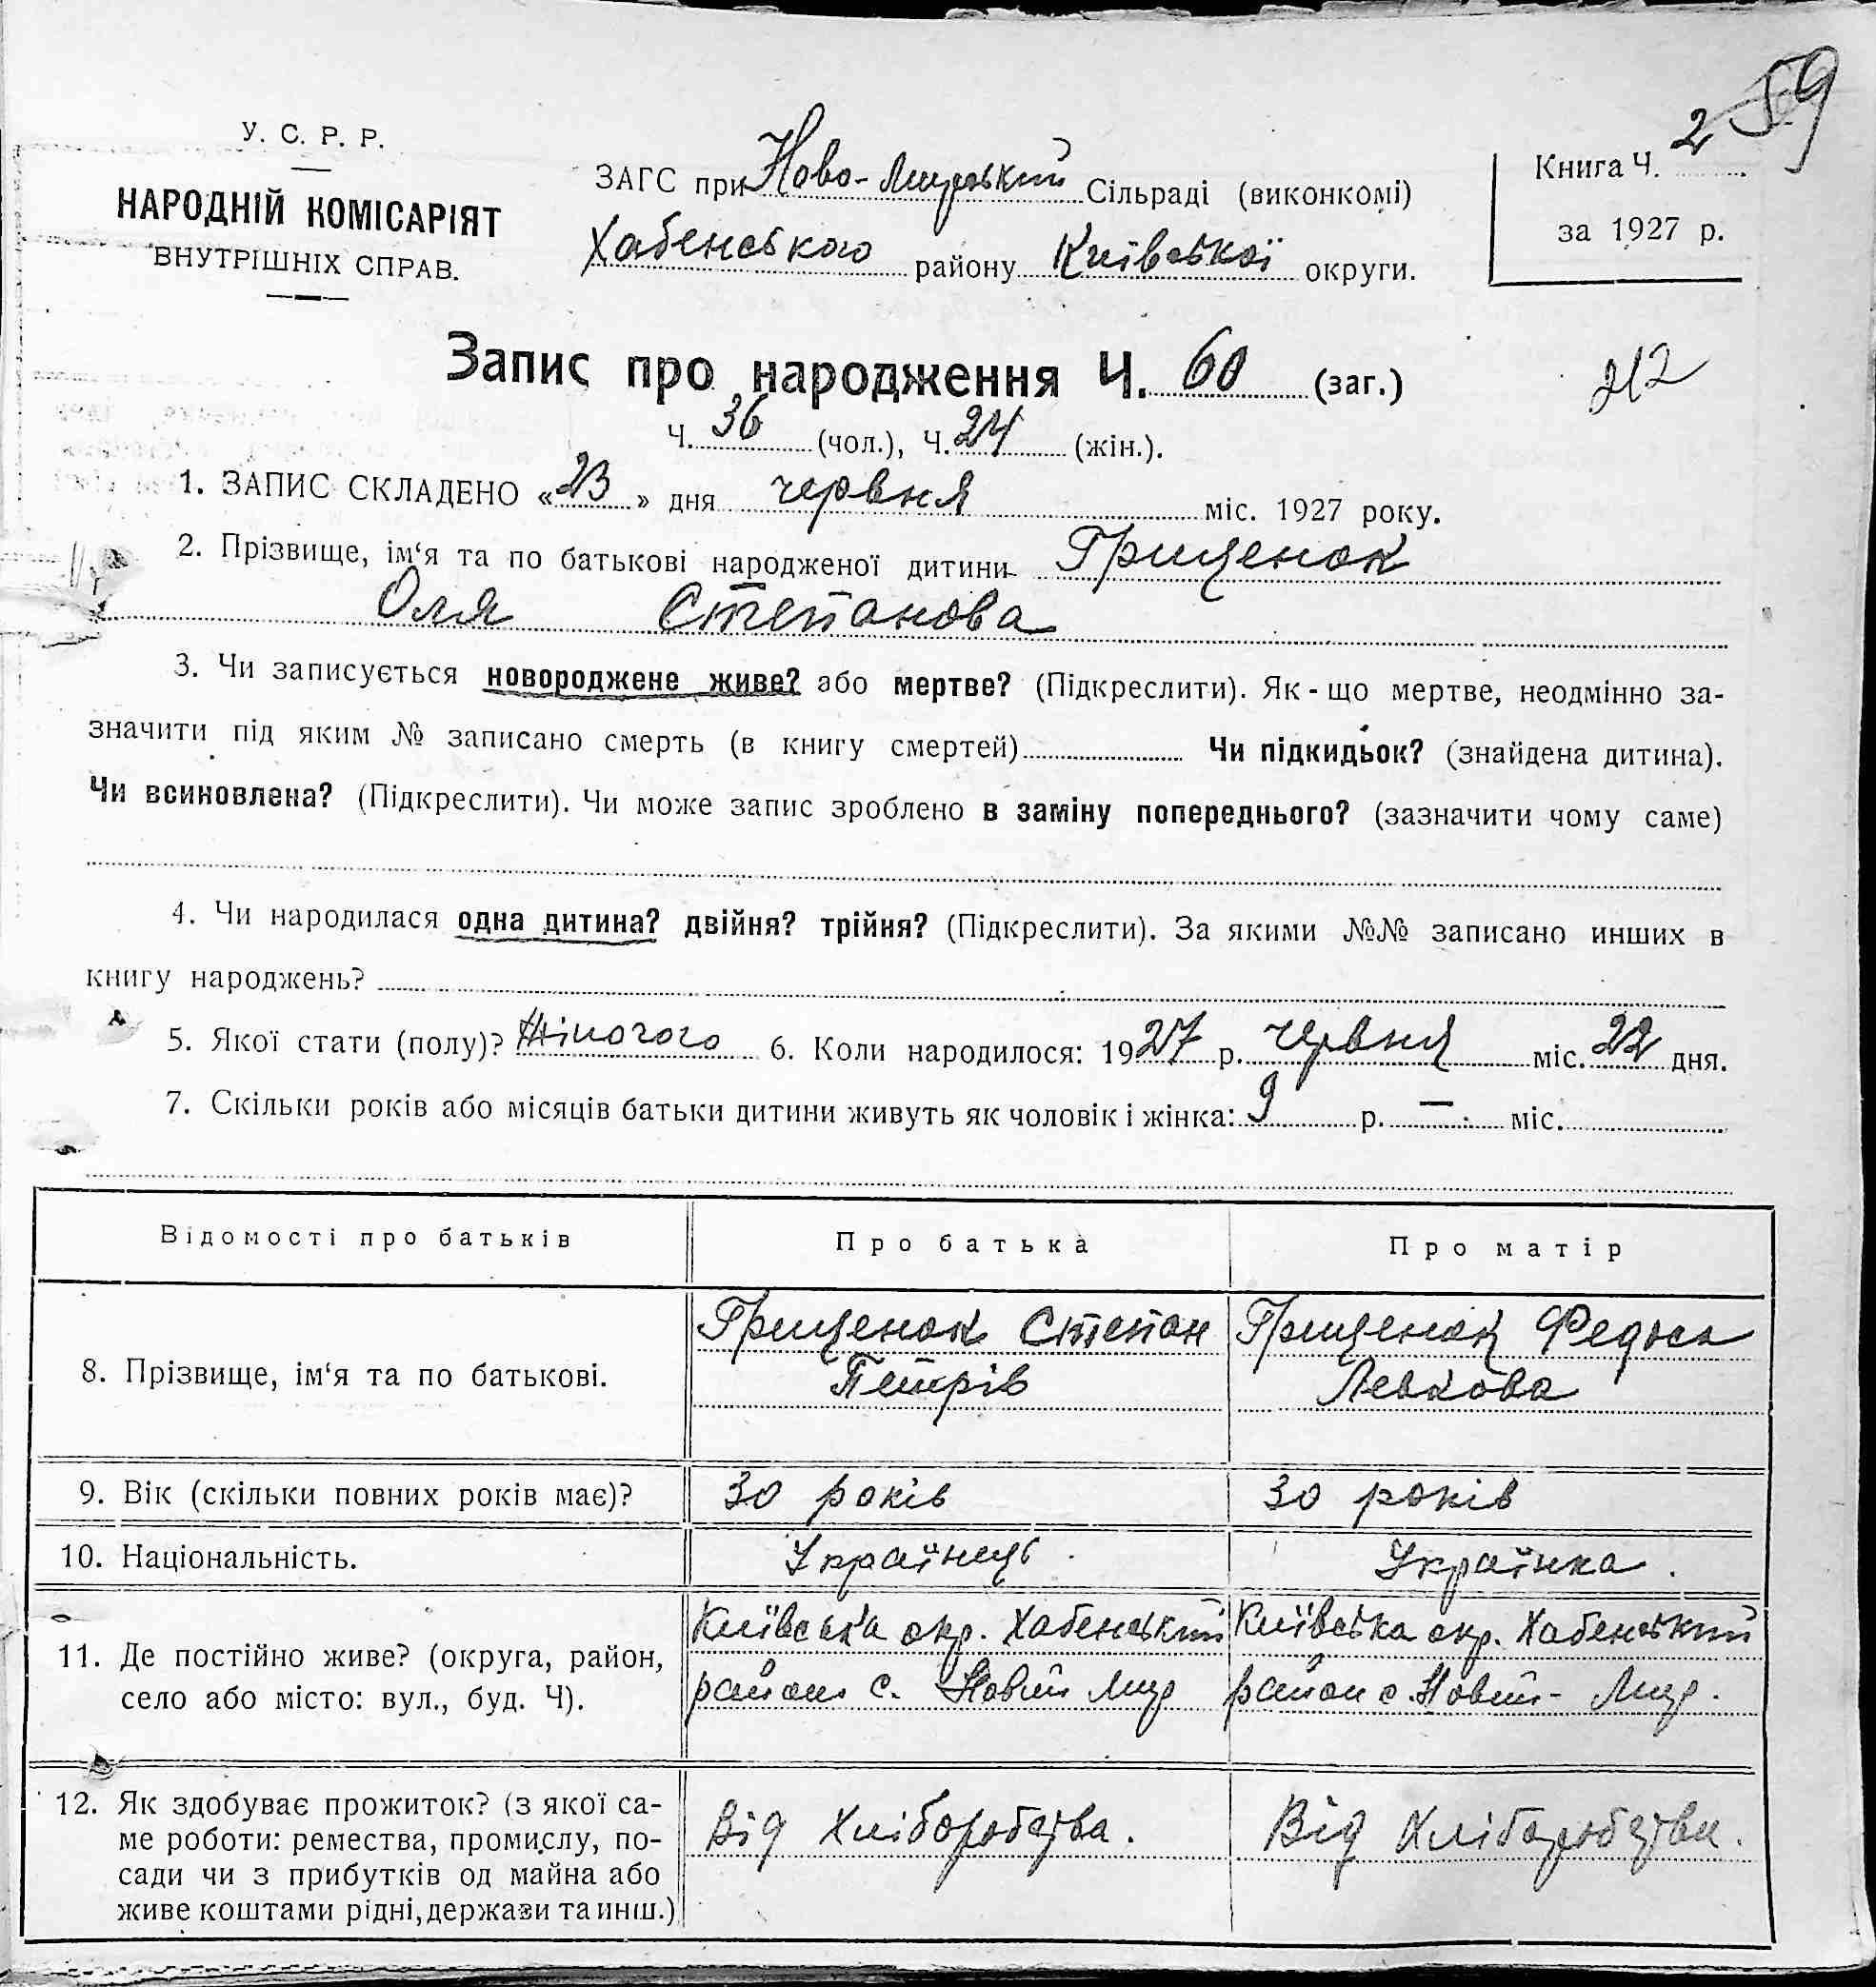 59
У. С. Р. Р.
НАРОДНІЙ КОМІСАРІЯТ
ВНУТРІШНІХ СПРАВ.
ЗАГС при Ново-Мирський Сільраді (виконкомі)
Хабенського району Київської округи.
Книга Ч. 2
за 1927 р.
Запис про народження Ч. 60 (заг.)
212
Ч. 36 (чол.), Ч. 24 (жін.).
1. ЗАПИС СКЛАДЕНО «23» дня червня міс. 1927 року.
2. Прізвище, ім‘я та по батькові народженої дитини Грищенок
Оля Степанова
3. Чи записується новороджене живе? або мертве? (Підкреслити). Як-що мертве, неодмінно за-
значити під яким № записано смерть (в книгу смертей) Чи підкидьок? (знайдена дитина).
Чи всиновлена? (Підкреслити). Чи може запис зроблено в заміну попереднього? (зазначити чому саме)
4. Чи народилася одна дитина? двійня? трійня? (Підкреслити). За якими №№ записано инших в
книгу народжень?
5. Якої стати (полу)? Жіночого 6. Коли народилося: 1927 р. червня міс. 22 дня.
7. Скільки років або місяців батьки дитини живуть як чоловік і жінка: 9 р. — міс.
Відомості про батьків Про батька Про матір
8. Прізвище, ім‘я та по батькові.
Грищенок Степан
Петрів
Грищенок Федося
Левкова
9. Вік (скільки повних років має)? 30 років 30 років
10. Національність. Українець. Українка.
11. Де постійно живе? (округа, район,
село або місто: вул., буд. Ч).
Київська окр. Хабенський
район с. Новий Мир
Київська окр. Хабенський
район с. Новий-Мир.
12. Як здобуває прожиток? (з якої са-
ме роботи: ремества, промислу, по-
сади чи з прибутків од майна або
живе коштами рідні, держави та инш.)
Від Хліборобства.
Від Хліборобства.